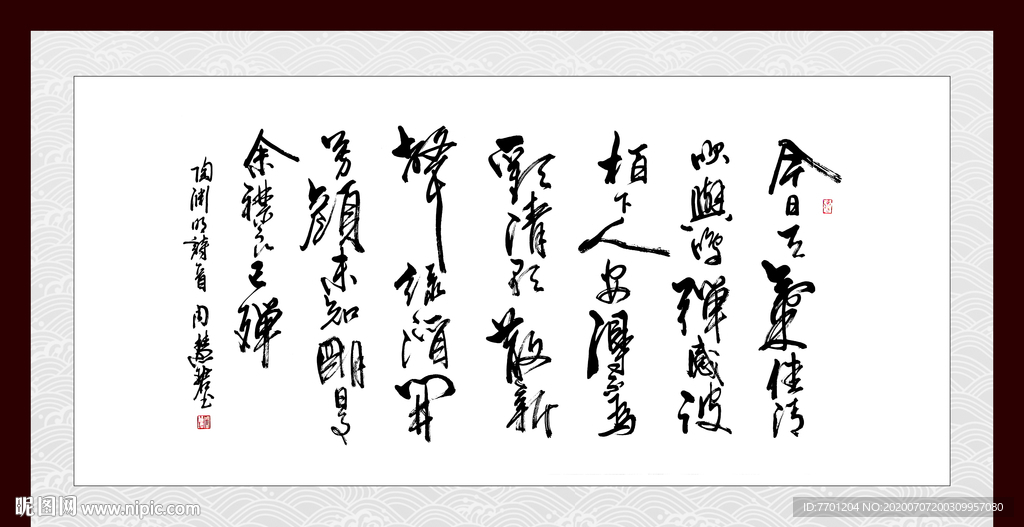 今日天氣佳清
吹與鳴彈感彼
柏下人安得不為
歡清歌散新
聲綠酒開
芳顏未知明日事
余襟良已殫
陶渊明詩一首 周慧珺
昵图网 www.nipic.com
ID:7701204 NO:20200707200309957080